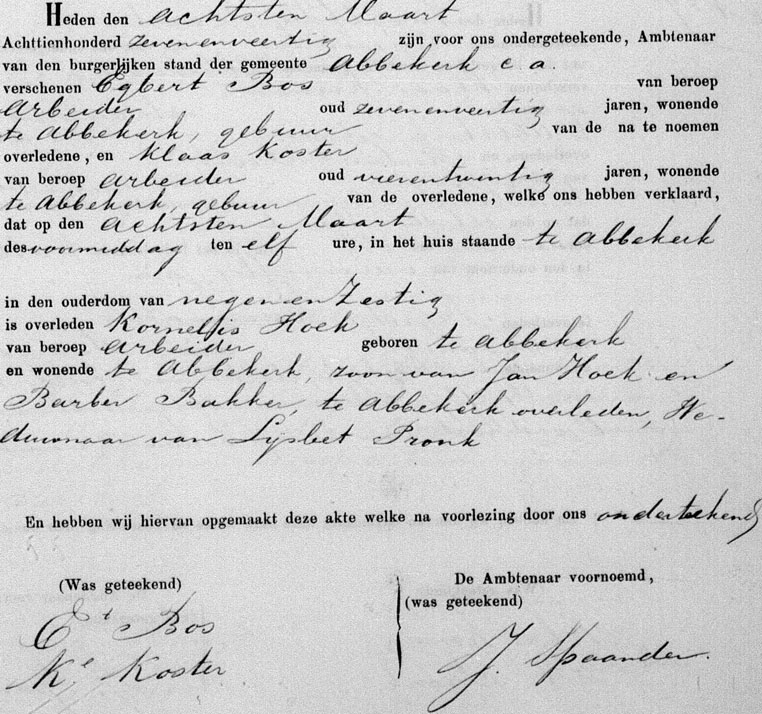 Heden den achtsten Maart
Achttienhonderd zevenenveertig zijn voor ons ondergeteekende, Ambtenaar
van den burgerlijken stand der gemeente Abbekerk c a.
verschenen Egbert Bos van beroep
Arbeider oud zevenenveertig jaren, wonende
te Abbekerk, gebuur van de na te noemen
overledene, en Klaas Koster
van beroep arbeider oud vierentwintig jaren, wonende
te Abbekerk, gebuur van de overledene, welke ons hebben verklaard,
dat op den achtsten Maart
des voormiddag ten elf ure, in het huis staande te Abbekerk
in den ouderdom van negenenzestig
is overleden Kornelis Hoek
van beroep Arbeider geboren te Abbekerk
en wonende te Abbekerk, zoon van Jan Hoek en
Barber Bakker, te Abbekerk overleden, We-
duwnaar van Lijsbet Pronk
En hebben wij hiervan opgemaakt deze akte welke na voorlezing door ons onderteekend
(Was geteekend) De Ambtenaar voornoemd,
(was geteekend)
Et Bos
Ks Koster
J. Spaander.